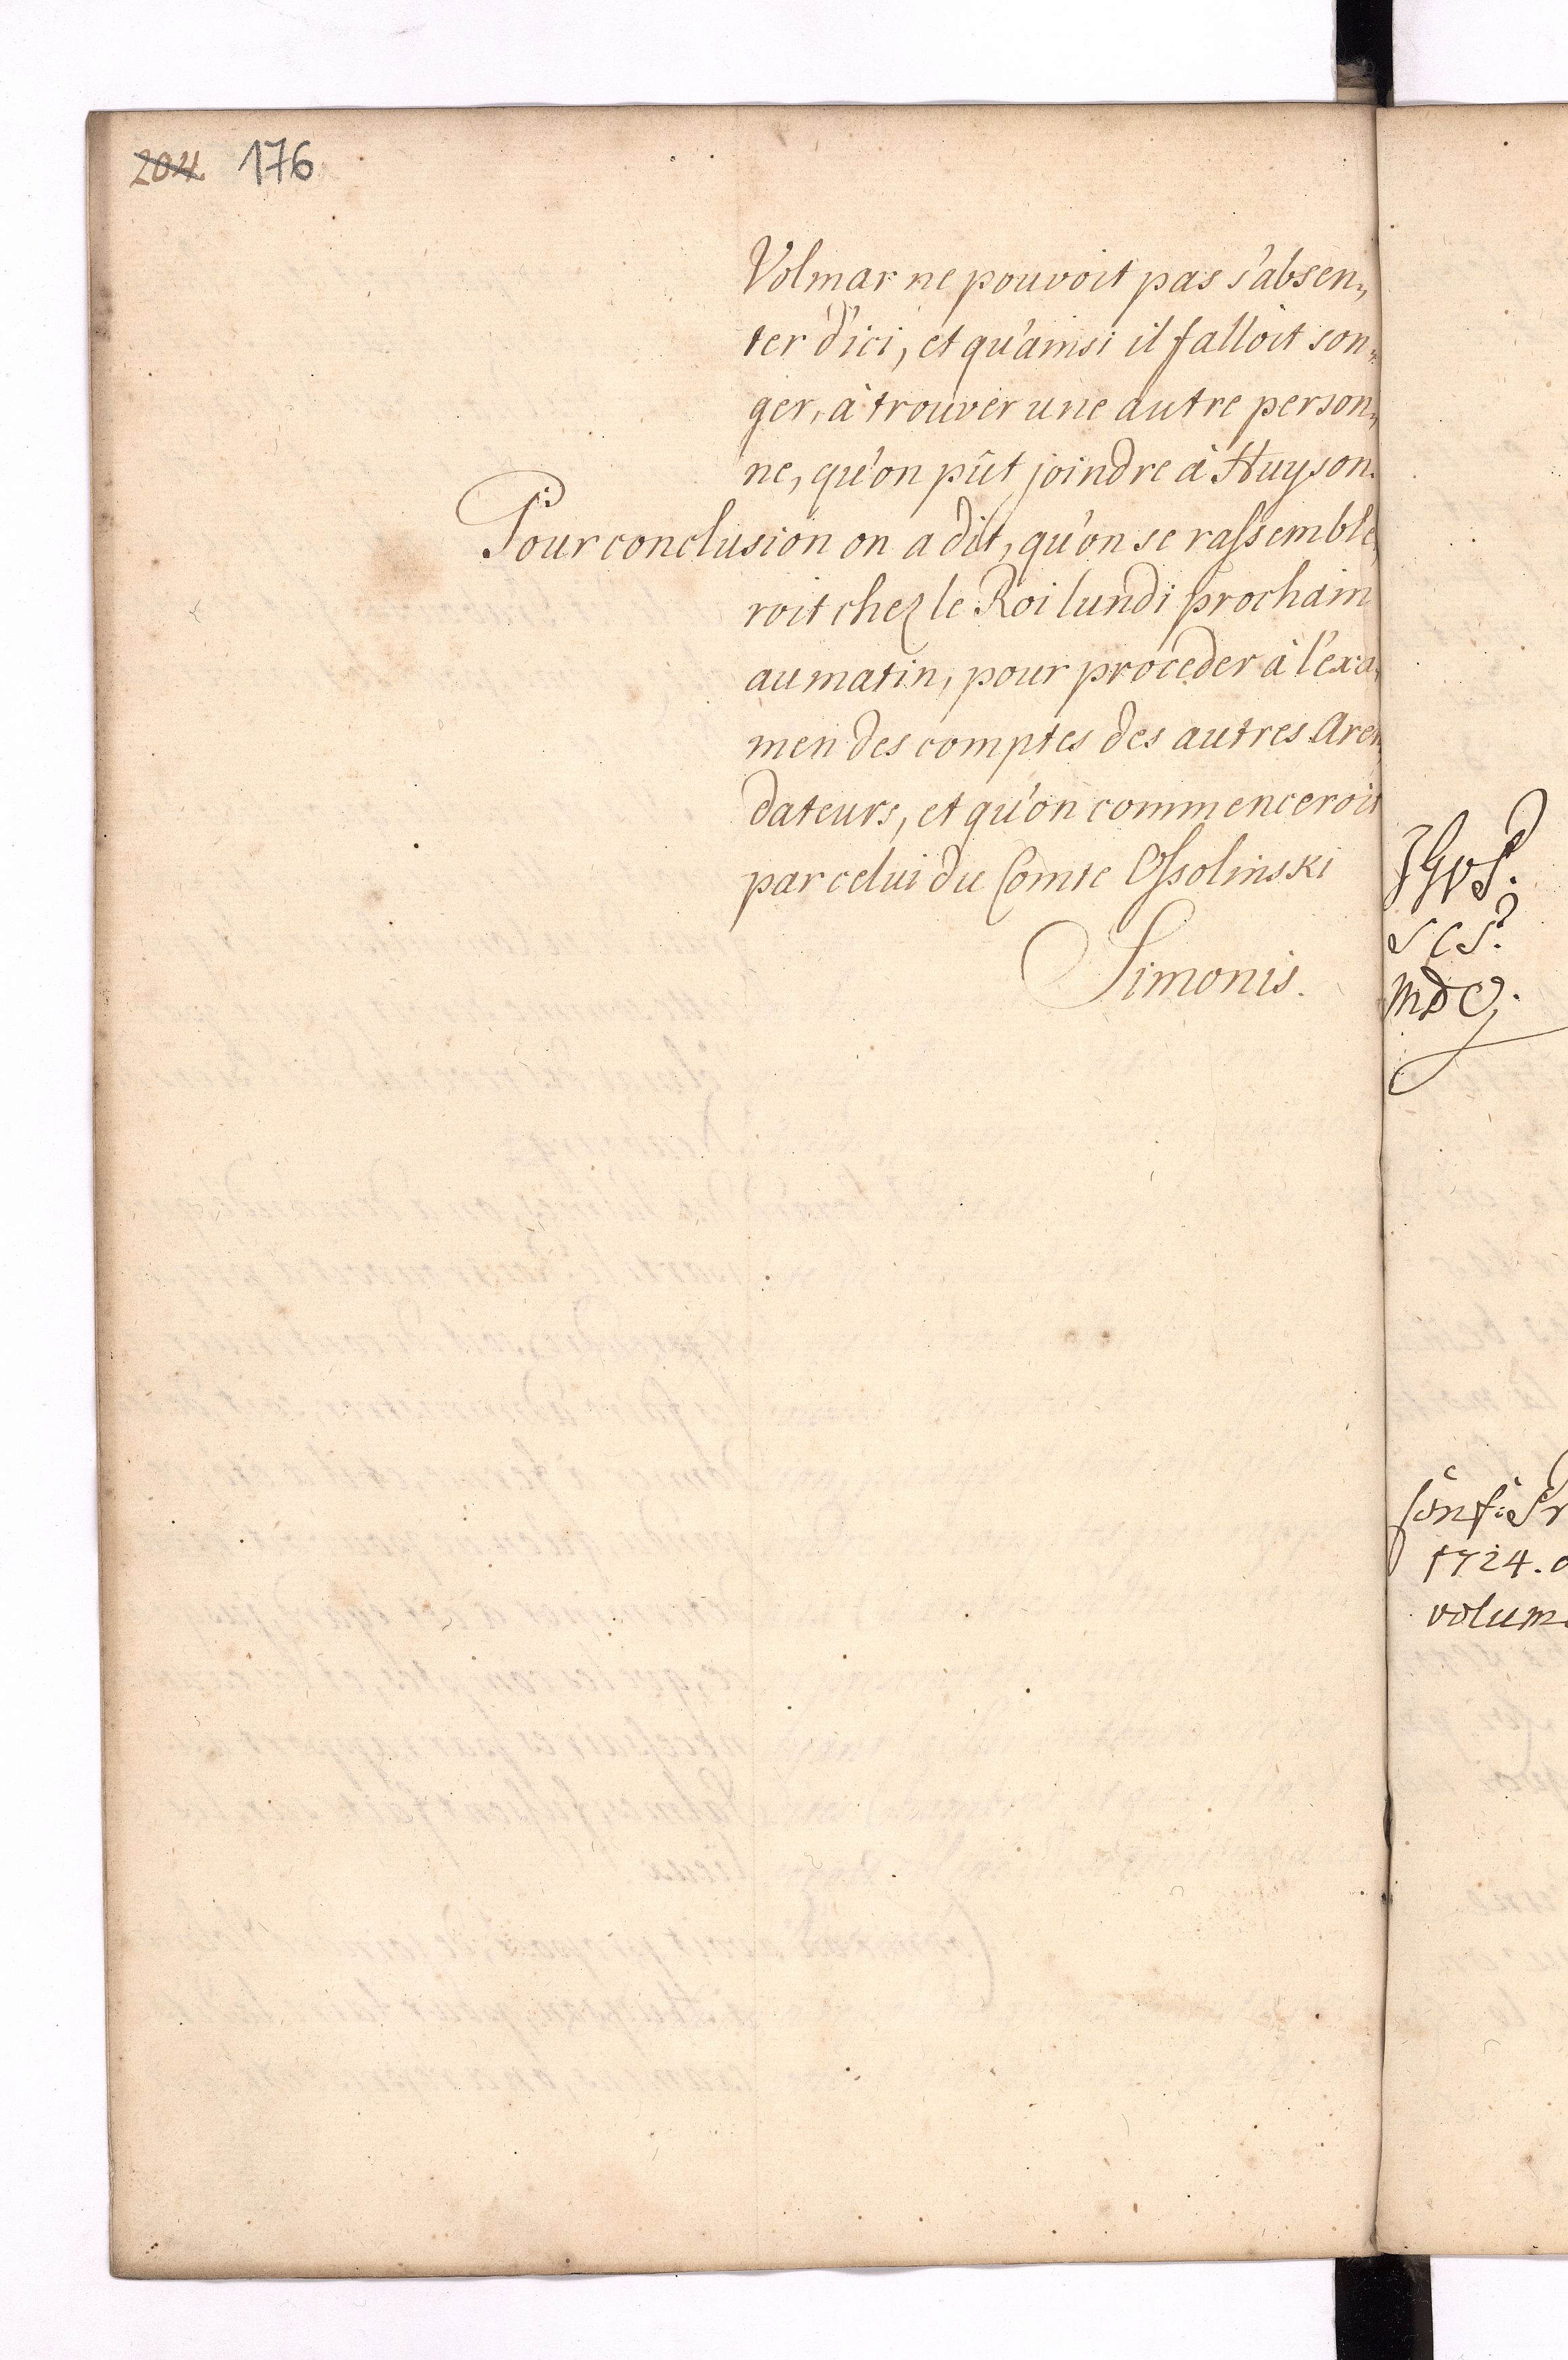 204 176
Volmar ne pouvoit pas s'absen„
ter d'ici, et qu'ainsi il falloit son„
ger, à trouver une autre person„
ne, qu'on pût joindre à Huyson.
Pour conclusion on a dit, qu'on se raſsemble„
roit chez le Roi lundi prochain
au matin, pour proceder à l'exa„
men des comptes des autres Aren„
dateurs, et qu'on commenceroit
par celui du Comte Oſsolinski
Simonis.
1724.
volum